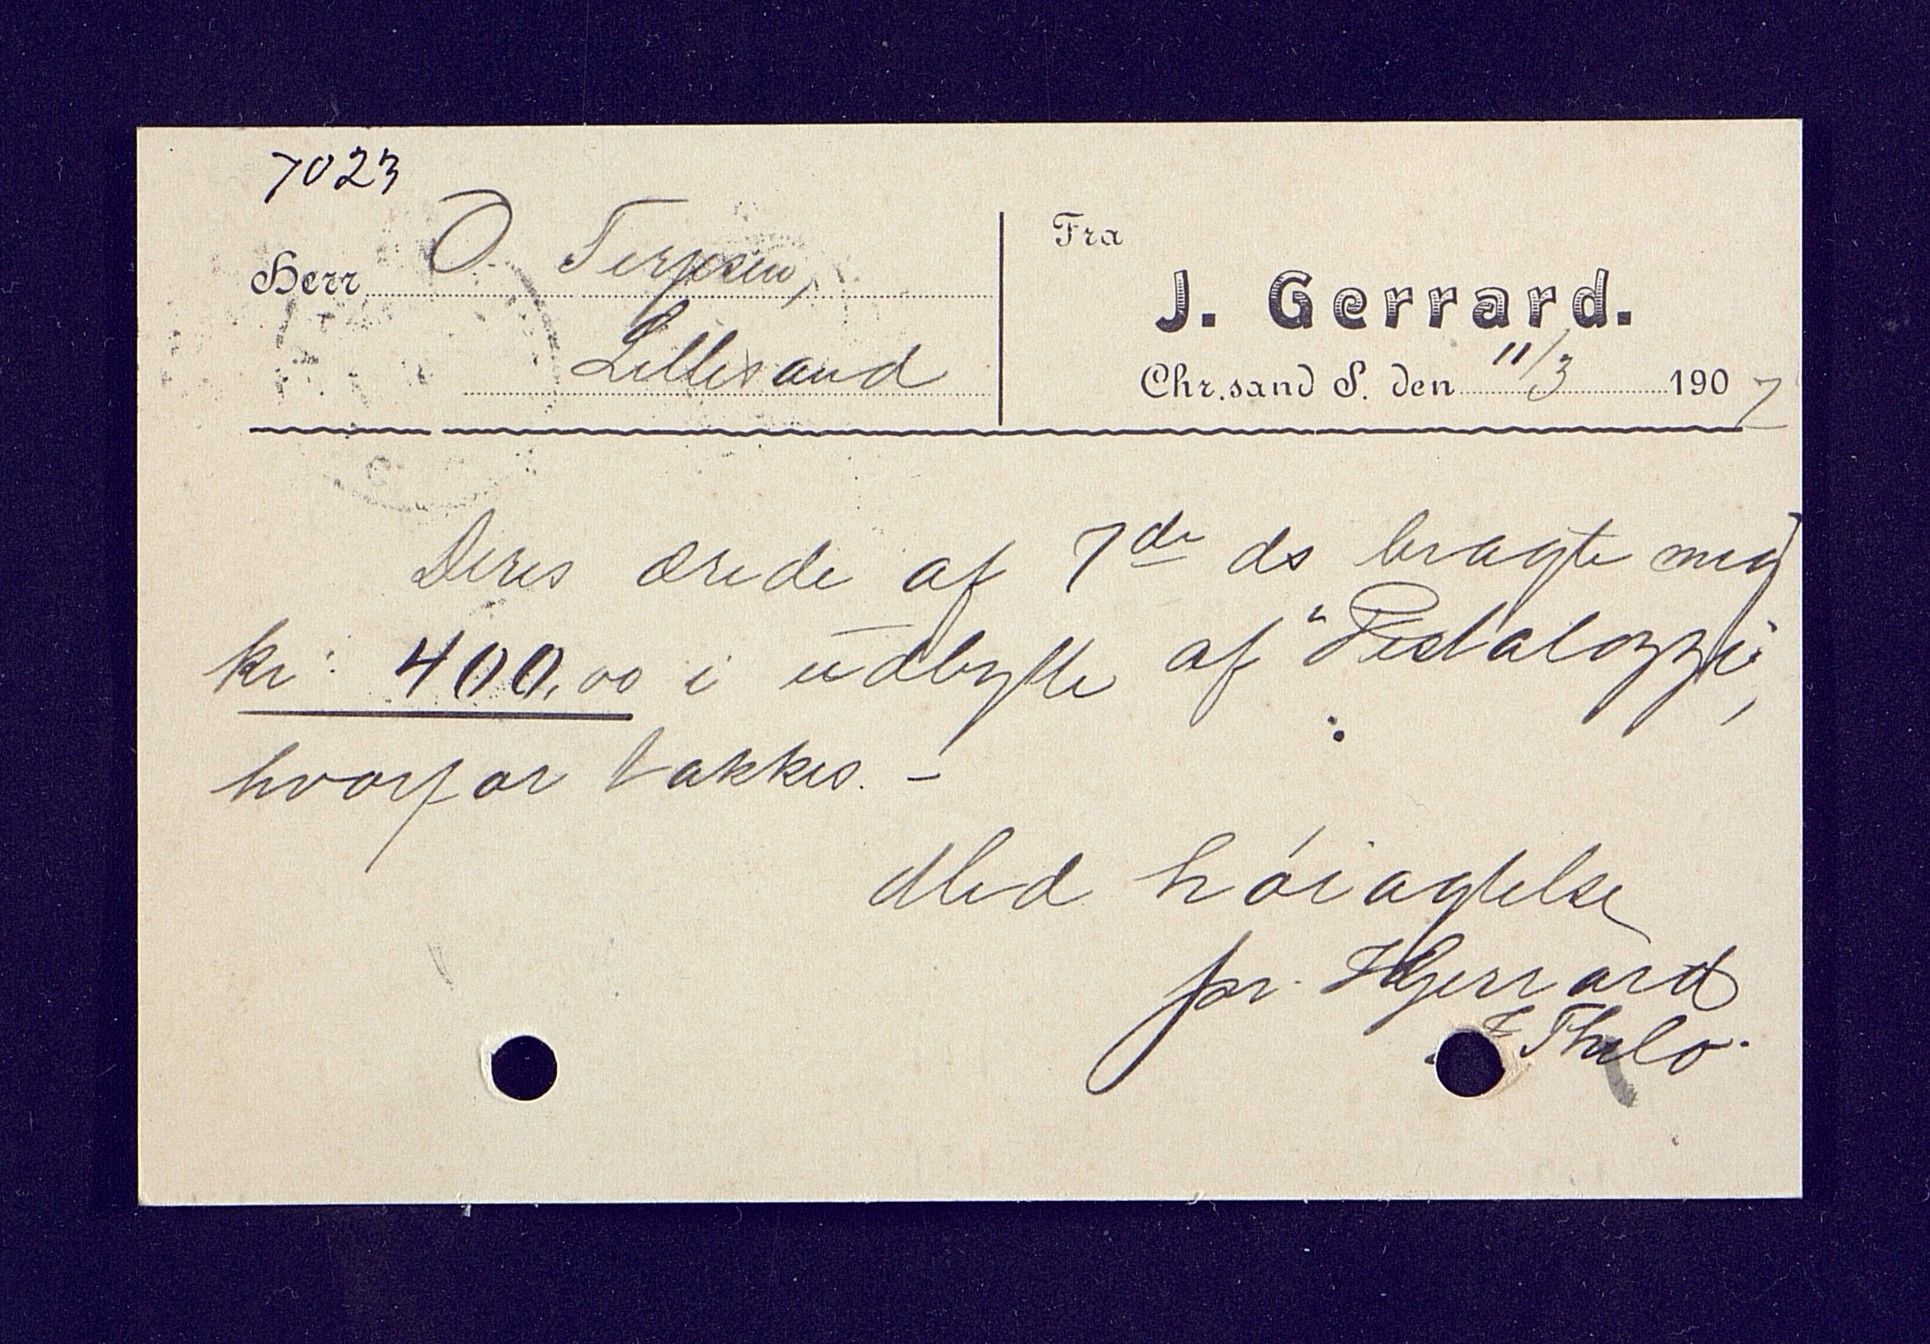 7023
Herr O. Terjesen,
Lillesand
Fra
J. Gerrard.
Chr.sand S. den 11/3 1907
Deres ærede af 7de ds bragte mig
kr: 400,00 i udbytte af "Pestalozzi",
hvorfor takkes. -
Med høiagtelse
pr. J Gerrard
Thilo